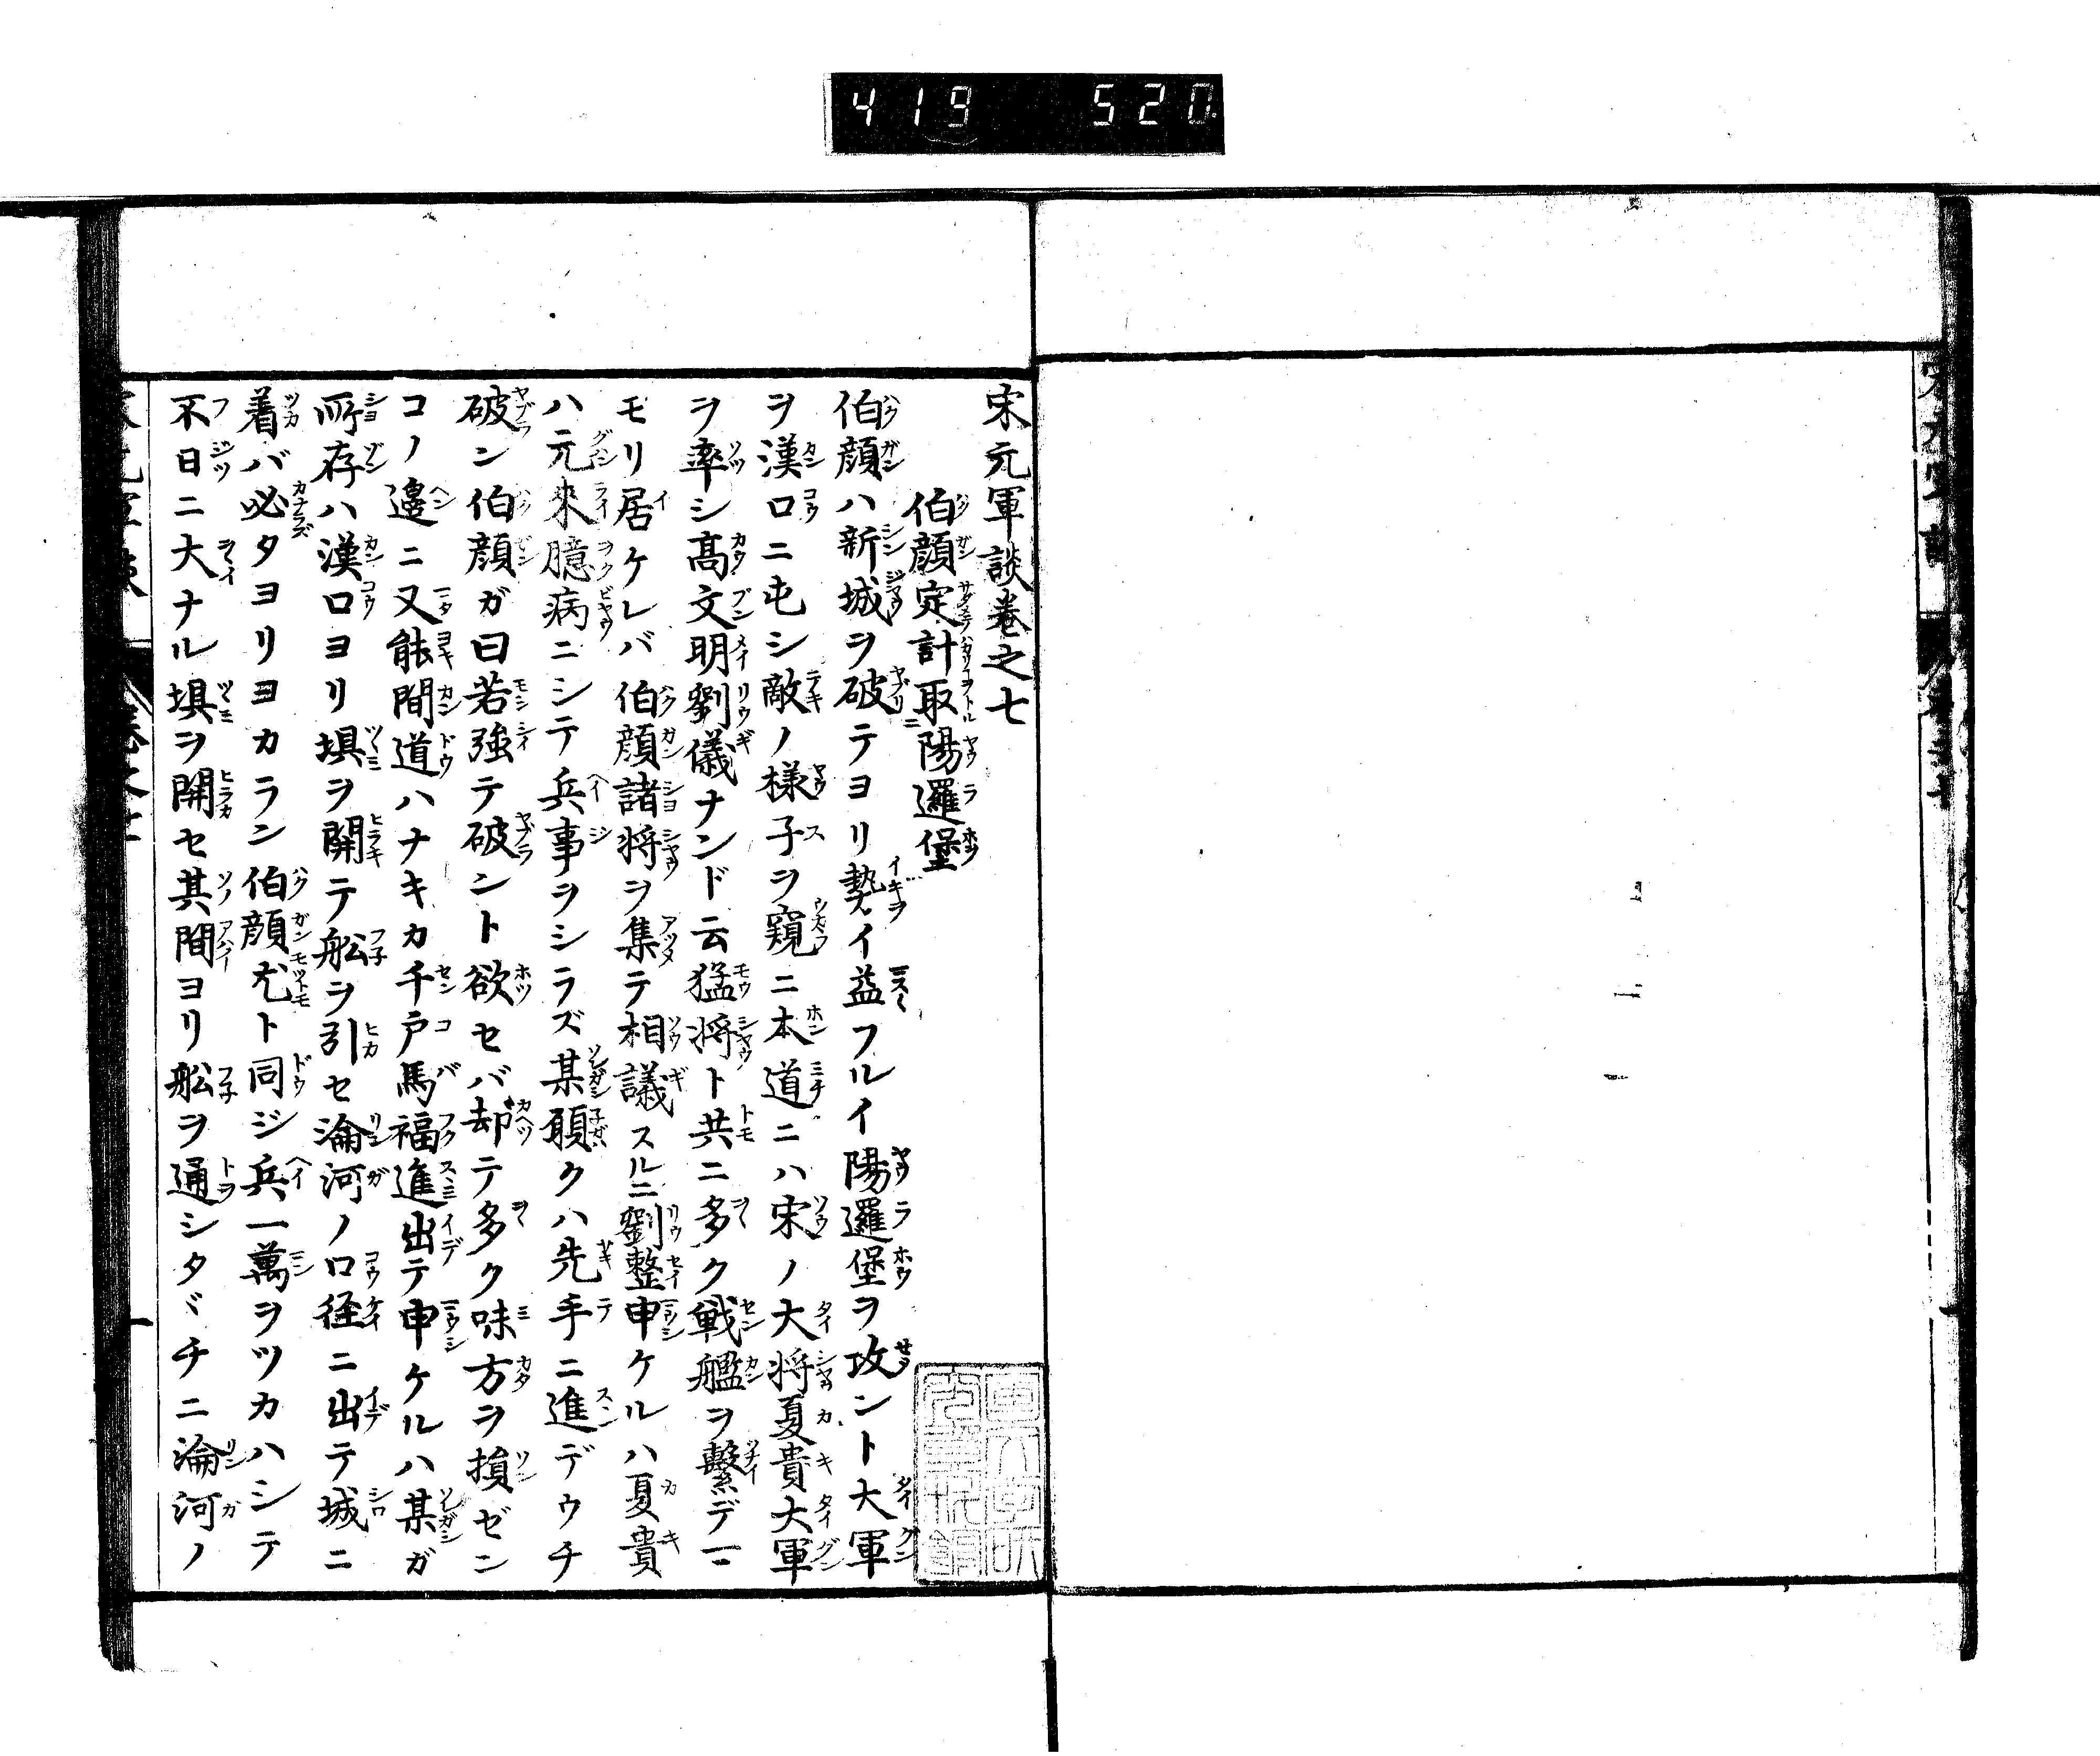 419 520
宋元軍談巻之七
伯顔定計取陽邏堡
伯顔ハ新城ヲ破テヨリ勢イ益フルイ陽邏堡ヲ攻ント大軍
ヲ漢口ニ屯シ敵ノ様子ヲ窺ニ本道ニハ宋ノ大将夏貴大軍
ヲ率シ髙文明劉儀ナンド云猛将ト共ニ多ク戦艦ヲ繫デ
モリ居ケレバ伯顔諸将ヲ集テ相議スルニ劉整申ケルハ夏貴
ハ元來臆病ニシテ兵事ヲシラズ某願クハ先手ニ進デウチ
破ン伯顔ガ曰若強テ破ント欲セバ却テ多ク味方ヲ損ゼン
コノ邉ニ又能間道ハナキカ千戸馬福進出テ申ケルハ某ガ
所存ハ漢口ヨリ埧ヲ開テ舩ヲ引セ淪河ノ口径ニ出テ城ニ
着バ必タヨリヨカラン伯顔尤ト同ジ兵一萬ヲツカハシテ
不日ニ大ナル埧ヲ開セ其間ヨリ舩ヲ通シタヾチニ淪河ノ